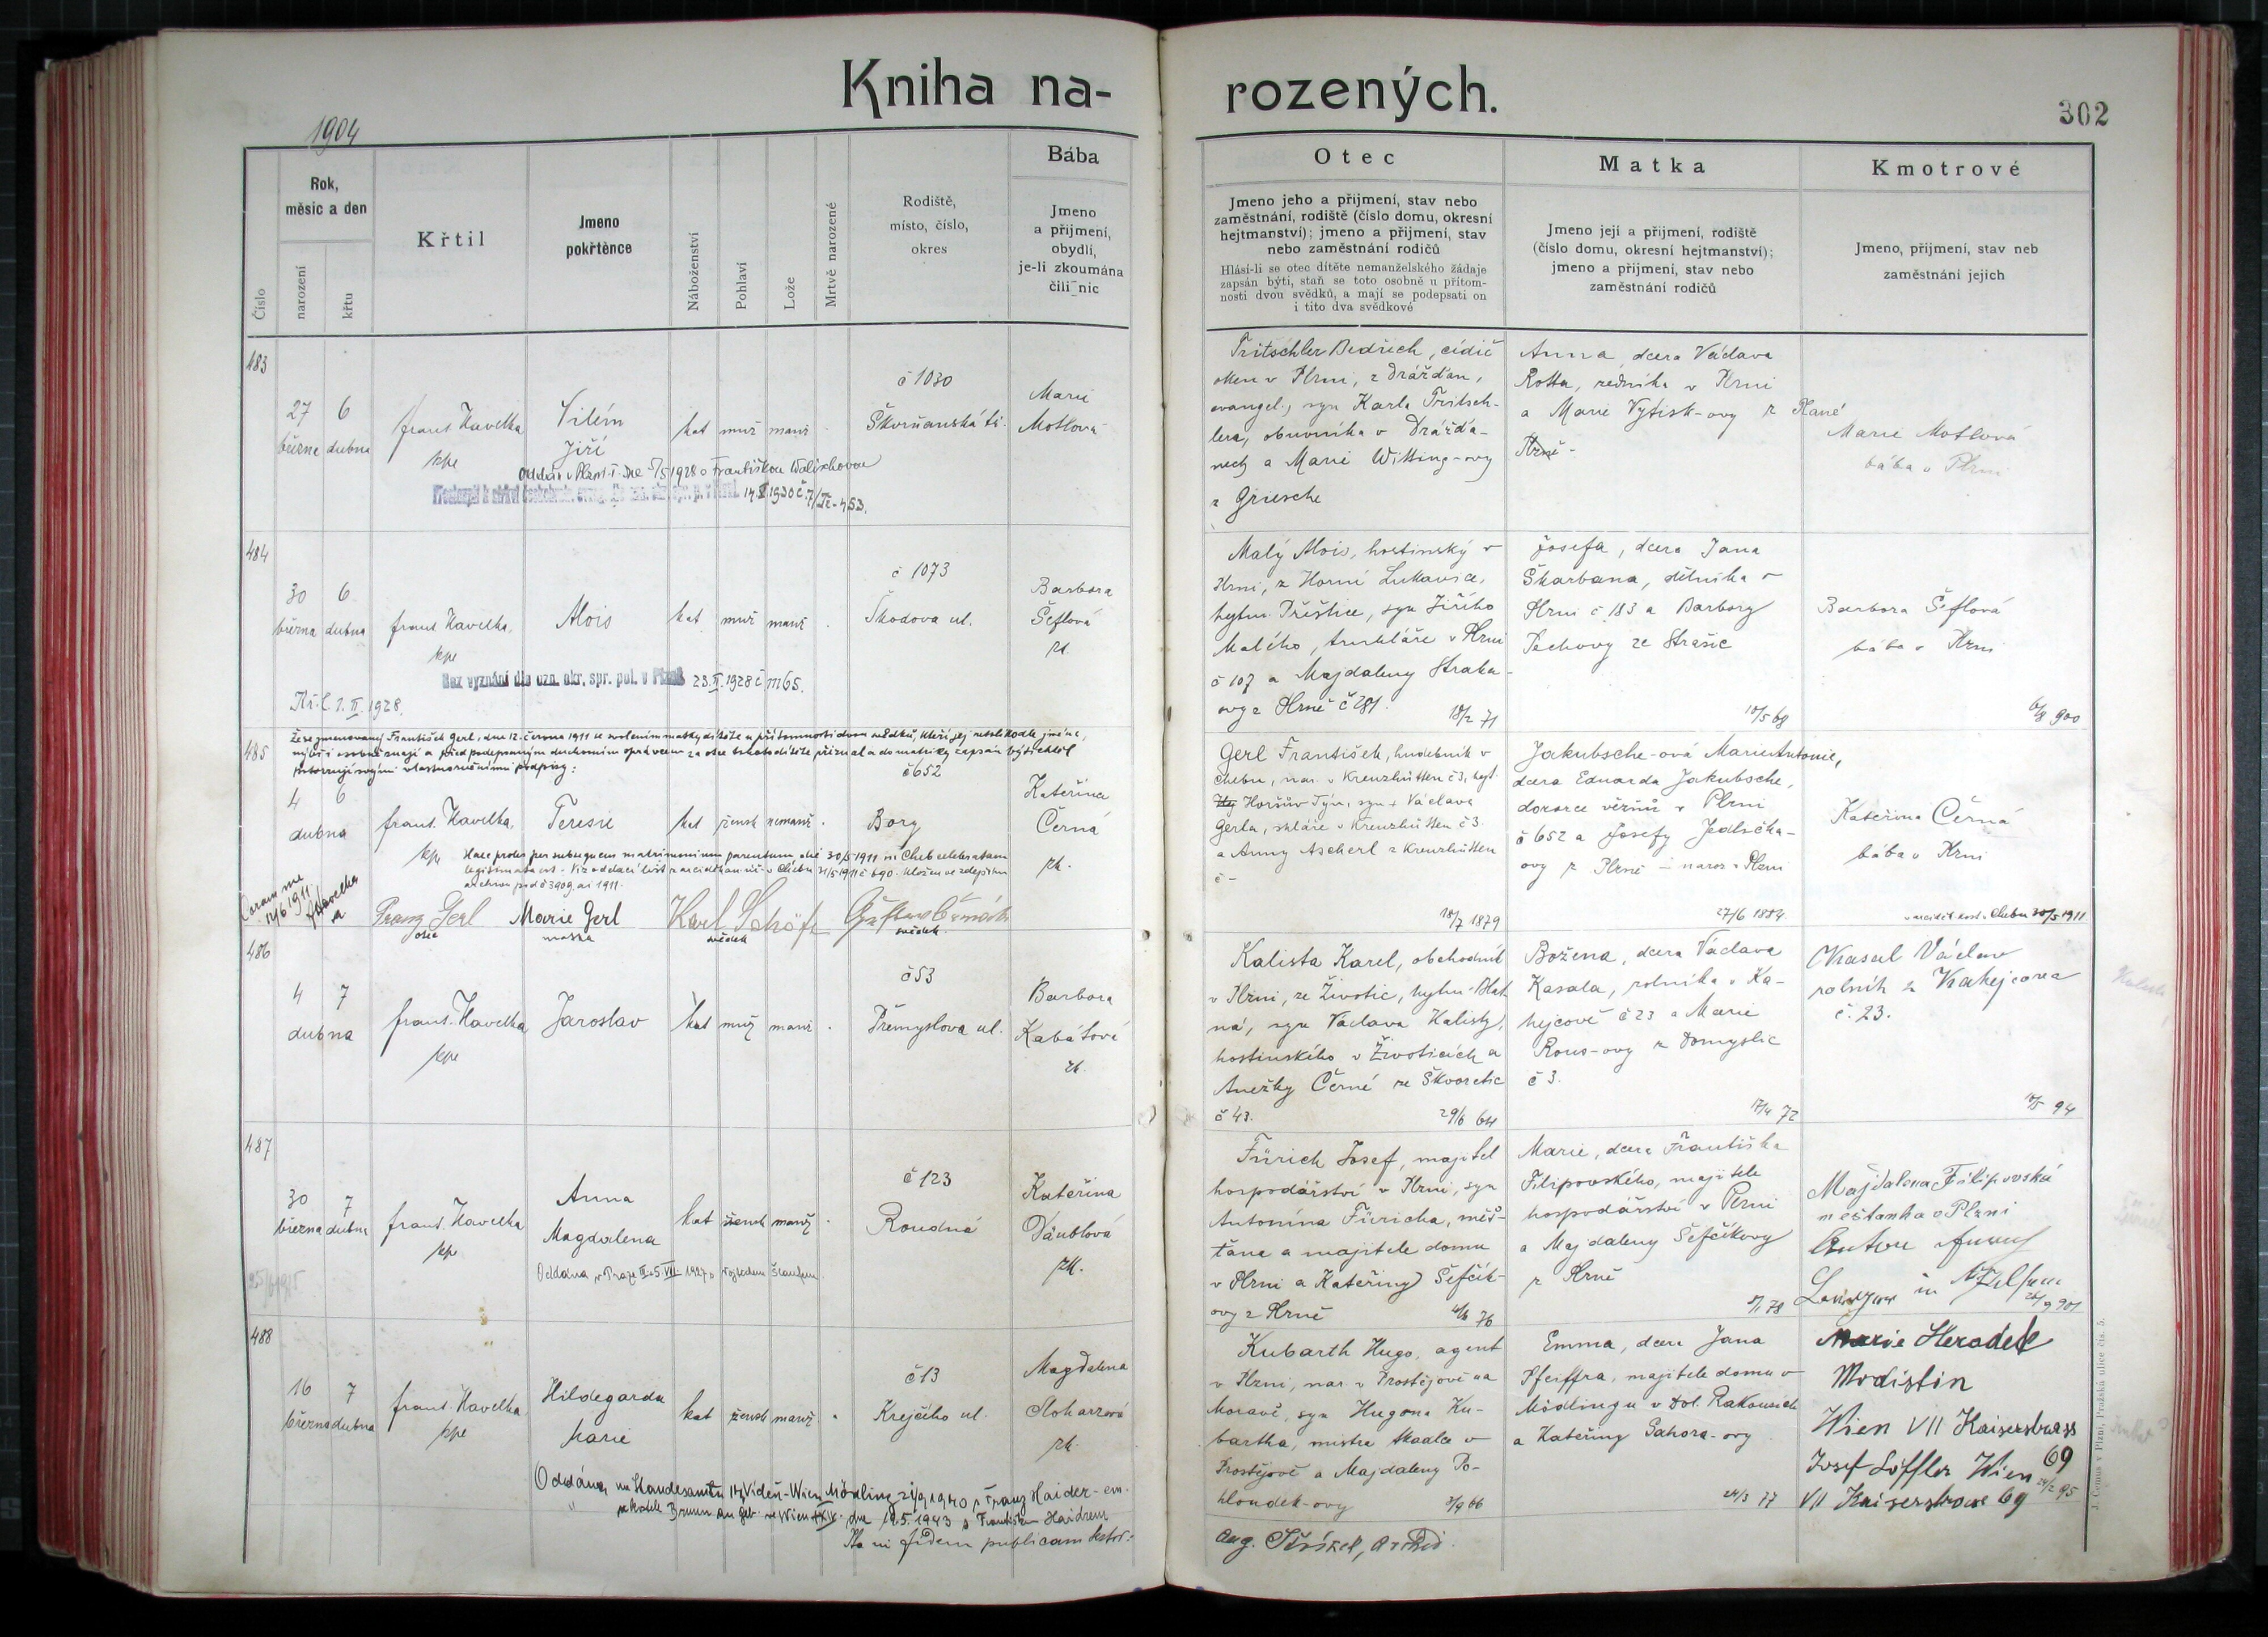 Kniha na-
rozených.
302
1904
Číslo
Rok,
měsíc a den
narození
křtu
Křtil
Jmeno
pokřtěnce
Náboženství
Pohlaví
Lože
Mrtvě narozené
Rodiště,
místo, číslo,
okres
Bába
Jmeno
a přijmení,
obydlí,
je-li zkoumána
čili nic
Otec
Jmeno jeho a přijmení, stav nebo
zaměstnání, rodiště (číslo domu, okresní
hejtmanství); jmeno a přijmení, stav
nebo zaměstnání rodičů
Hlásí-li se otec dítěte nemanželského žádaje
zapsán býti, staň se toto osobně u přítom-
nosti dvou svědků, a mají se podepsati on
i tito dva svědkové
Matka
Jmeno její a přijmení, rodiště
(číslo domu, okresní hejtmanství);
jmeno a přijmení, stav nebo
zaměstnání rodičů
Kmotrové
Jmeno, přijmení, stav neb
zaměstnání jejich
483
27
března
6
dubna
frant. Havelka
kpe
Vilém
Jiří
kat
muž
manž
č 1030
Škvrňanská tř.
Marie
Motlová
Oddán v Plzni 1928 s Františkou
14. 1930 č. 7/ - 453.
Tritschler Bedřich, cídič
oken v Plzni, z Drážďan,
evangel., syn Karla Tritsch-
lera, obuvníka v Dráždá-
nech a Marie Witting-ovy
z Griesche
Anna, dcera Václava
Rotta, řezníka v Plzni
a Marie Vytisk-ovy z Plané
Plzně-
Marie Motlová
bába v Plzni
484
30
března
6
dubna
frant. Havelka,
kpe
Alois
kat
muž
manž
č 1073
Škodova ul.
Barbora
Šeflová
zk.
Bez vyznání dle ozn. okr. spr. pol. v Plzni 23. II. 1928 č m65.
Kř. l. 1. II. 1928.
Malý Alois, hostinský v
Plzni, z Horní Lukavice,
hejtm. Přeštice, syn Jiřího
Malého, truhláře v Plzni
č 107 a Majdaleny Straka-
ovy z Plzně č 281.
18/2 71
Josefa, dcera Jana
Škarbana, dělníka v
Plzni č 183 a Barbory
Pechovy ze Strašic
10/5 68
Barbora Šeflová
bába v Plzni
900
485
Že se jmenovaný František Gerl, dne 12. června 1911 se svolením matky dítěte u přítomnosti dvou svědků, kteří jej netoliko dle jména,
nýbrž i osobně znají a před podepsaným duchovním správcem za otce tohoto dítěte přiznal a do matriky zapsán býti chtěl
potvrzují svými vlastnoručními podpisy:
4
6
dubna
frant. Havelka,
kpe
Teresie
kat
žensk
nemanž.
č 652
Bory
Kateřina
Černá
zk.
Haec proles per subsequens matrimonium parentum, die 30/5 1911 in Cheb celebratum
legitimata est. Viz oddací list z arciděkan. úř. v Chebu 31/5 1911 č 690. uložen ve zdejším
archivu pod č 3909 ai 1911.
Coram me
12/6 1911
Havelka
Franz Gerl
otec
Marie Gerl
matka
Karl Schöft
svědek
svědek
Gerl František, hudebník v
Chebu, nar. v Kreuzhütten č 3, hejt.
Horšův Týn, syn + Václava
Gerla, skláře v Kreuzhütten č 3
a Anny Ascherl z Kreuzhütten
č -
18/7 1879
Jakubsche-ová Marie Antonie,
dcera Eduarda Jakubsche,
dozorce vězňů v Plzni
č 652 a Josefy Jedlička-
ovy z Plzně - naroz. v Plzni
27/6 1884
Kateřina Černá
bába v Plzni
Chebu 30/5 1911
486
4
7
dubna
frant. Havelka
kpe
Jaroslav
kat
muž
manž
č 53
Přemyslova ul.
Barbora
Kabátová
zk.
Kalista Karel, obchodník
v Plzni, ze Životic, hejtm. Blat-
ná, syn Václava Kalisty,
hostinského v Životicích a
Anežky Černé ze Škvoretic
č 43.
29/6 64
Božena, dcera Václava
Kasala, rolníka v Ka-
kejcově č 23 a Marie
Rous-ovy z Domyslic
č 3.
17/4 72
Kasal Václav
rolník z Kakejcova
č. 23.
94
487
30
března
7
dubna
frant. Havelka
kpe
Anna
Magdalena
kat
žensk
manž
č 123
Roudná
Kateřina
Däublová
zk.
Oddána v Praze III 5. VII. 1927 s Vojtěchem
Fürich Josef, majitel
hospodářství v Plzni, syn
Antonína Füricha, měš-
ťana a majitele domu
v Plzni a Kateřiny Šefčík-
ovy z Plzně
76
Marie, dcera Františka
Filipovského, majitele
hospodářství v Plzni
a Majdaleny Šefčíkovy
z Plzně
78
Majdalena Filipovská
měšťanka v Plzni
Anton
in Pilsen
901
488
16
března
7
dubna
frant. Havelka,
kpe
Hildegarda
Marie
kat
žensk
manž
č 13
Krejčího ul.
Magdalena
zk.
Oddána na Standesamtu Vídeň-Wien Mödling 1940 s Franz Haider-em.
dne 1943 s Františkem Haidrem
fidem publicam
Kubarth Hugo, agent
v Plzni, nar. v Prostějově na
Moravě, syn Hugona Ku-
bartha, mistra tkadlce v
Prostějově a Majdaleny Po-
hloudek-ovy
3/9 66
Emma, dcera Jana
Pfeiffra, majitele domu v
Mödlingu v Dol. Rakousích
a Kateřiny Sahora-ovy
24/3 77
Marie Heradek
Modistin
Wien VII Kaiserstrass
69
Josef Löffler Wien
VII Kaiserstrasse 69
95
J. Cešmus v Plzni, Pražská ulice čís. 5.